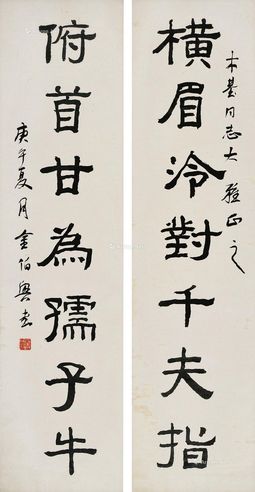 木基同志大雅正之
橫眉泠對千夫指
俯首甘為孺子牛
庚午夏月金伯興書